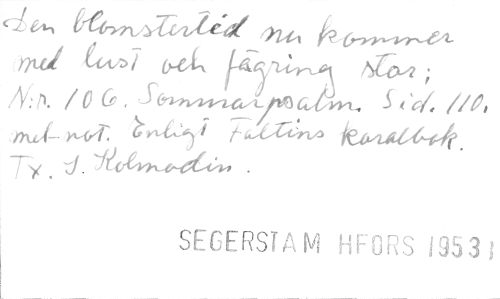 Den blomstertid nu kommer
med lust och fägring stor;
N:r. 106. Sommarpsalm. Sid. 110.
met-not. Enligt Faltins koralbok.
Tx. I. Kolmodin.
SEGERSTAM HFORS 1953